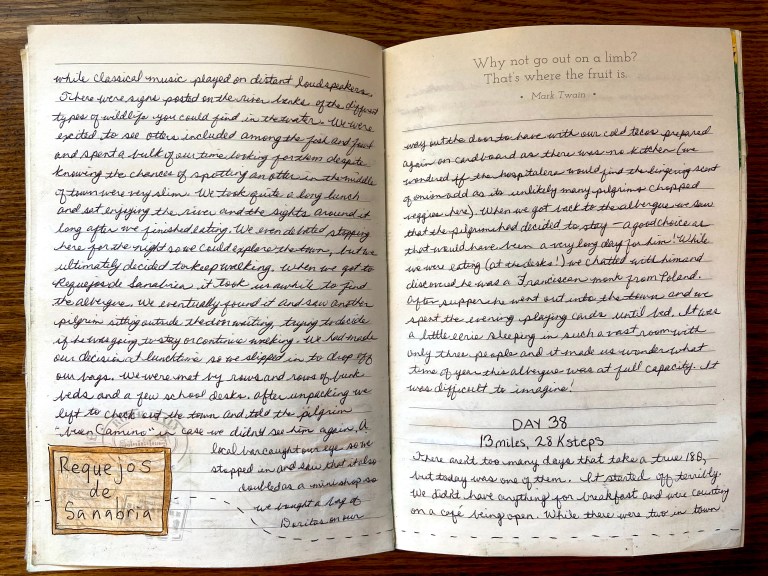 while classical music played on distant loudspeakers.
There were signs posted on the river banks of the different
types of wildlife you could find in the water. We were
excited to see otters included among the fish and fowl
and spent a bulk of our time looking for them despite
knowing the chances of spotting an otter in the middle
of town were very slim. We took quite a long lunch
and sat enjoying the river and the sights around it
long after we finished eating. We even debated stopping
here for the night so we could explore the town, but we
ultimately decided to keep walking. When we got to
Requejos de Sanabria, it took us awhile to find
the albergue. We eventually found it and saw another
pilgrim sitting outside the door waiting, trying to decide
if he was going to stay or continue walking. We had made
our decision at lunchtime so we slipped in to drop off
our bags. We were met by rows and rows of bunk
beds and a few school desks. After unpacking we
left to check out the town and told the pilgrim
"buen Camino" in case we didn't see him again. A
local bar caught our eye so we
stopped in and saw that it also
doubled as a mini shop so
we bought a bag of
Doritos on our
Requejos
de
Sanabria
Why not go out on a limb?
That's where the fruit is.
• Mark Twain •
way out the door to have with our cold tacos prepared
again on cardboard as there was no kitchen (we
wondered if the hospitalera would find the lingering scent
of onion odd as its unlikely many pilgrims chopped
veggies here). When we got back to the albergue we saw
that the pilgrim had decided to stay – a good choice as
that would have been a very long day for him! While
we were eating (at the desks!) we chatted with him and
discovered he was a Franciscan monk from Poland.
After supper he went out into the town and we
spent the evening playing cards until bed. It was
a little eerie sleeping in such a vast room with
only three people and it made us wonder what
time of year this albergue was at full capacity. It
was difficult to imagine!
DAY 38
13 miles, 28K steps
There aren't too many days that take a true 180,
but today was one of them. It started off terribly.
We didn't have anything for breakfast and were counting
on a café being open. While there were two in town